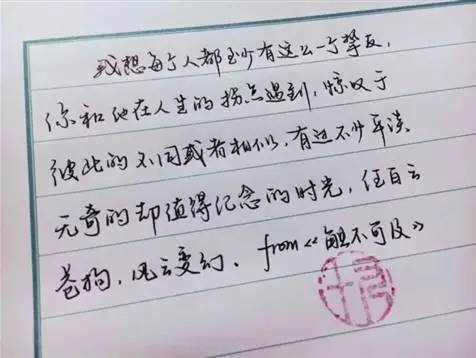 我想每个人都至少有这么一个挚友,
你和他在人生的拐点遇到,惊叹于
彼此的不同或者相似,有过不少平淡
无奇的却值得纪念的时光,任白云
苍狗,风云变幻. from《触不可及》